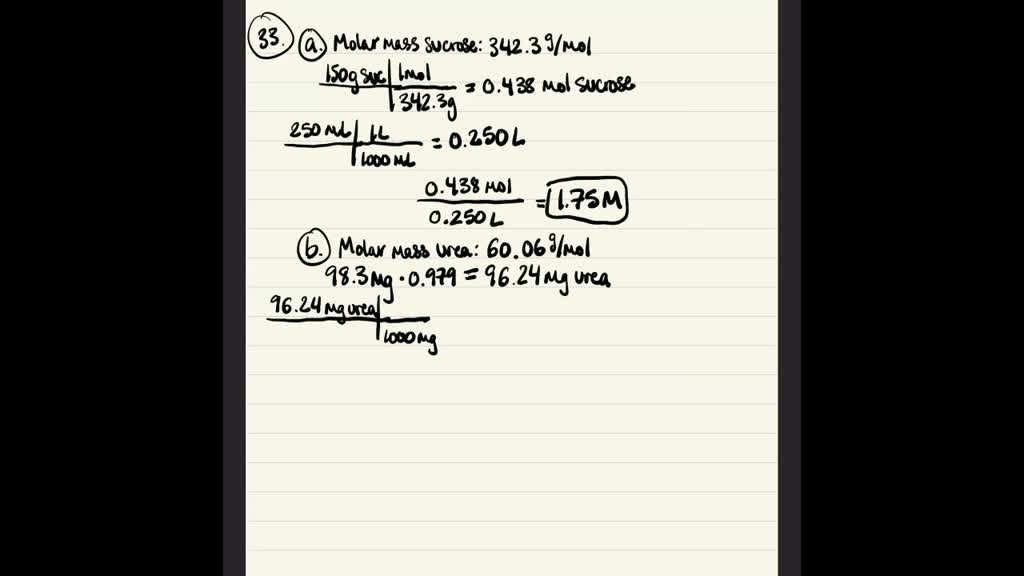 33. a. Molar mass sucrose: 342.3 g/mol
150g suc | 1 mol
342.3g
= 0.438 mol sucrose
250 mL | 1L
1000 mL
= 0.250 L
0.438 mol
0.250 L
= 1.75M
b. Molar mass urea: 60.06 g/mol
98.3mg · 0.979 = 96.24 mg urea
96.24 mg urea |
1000 mg